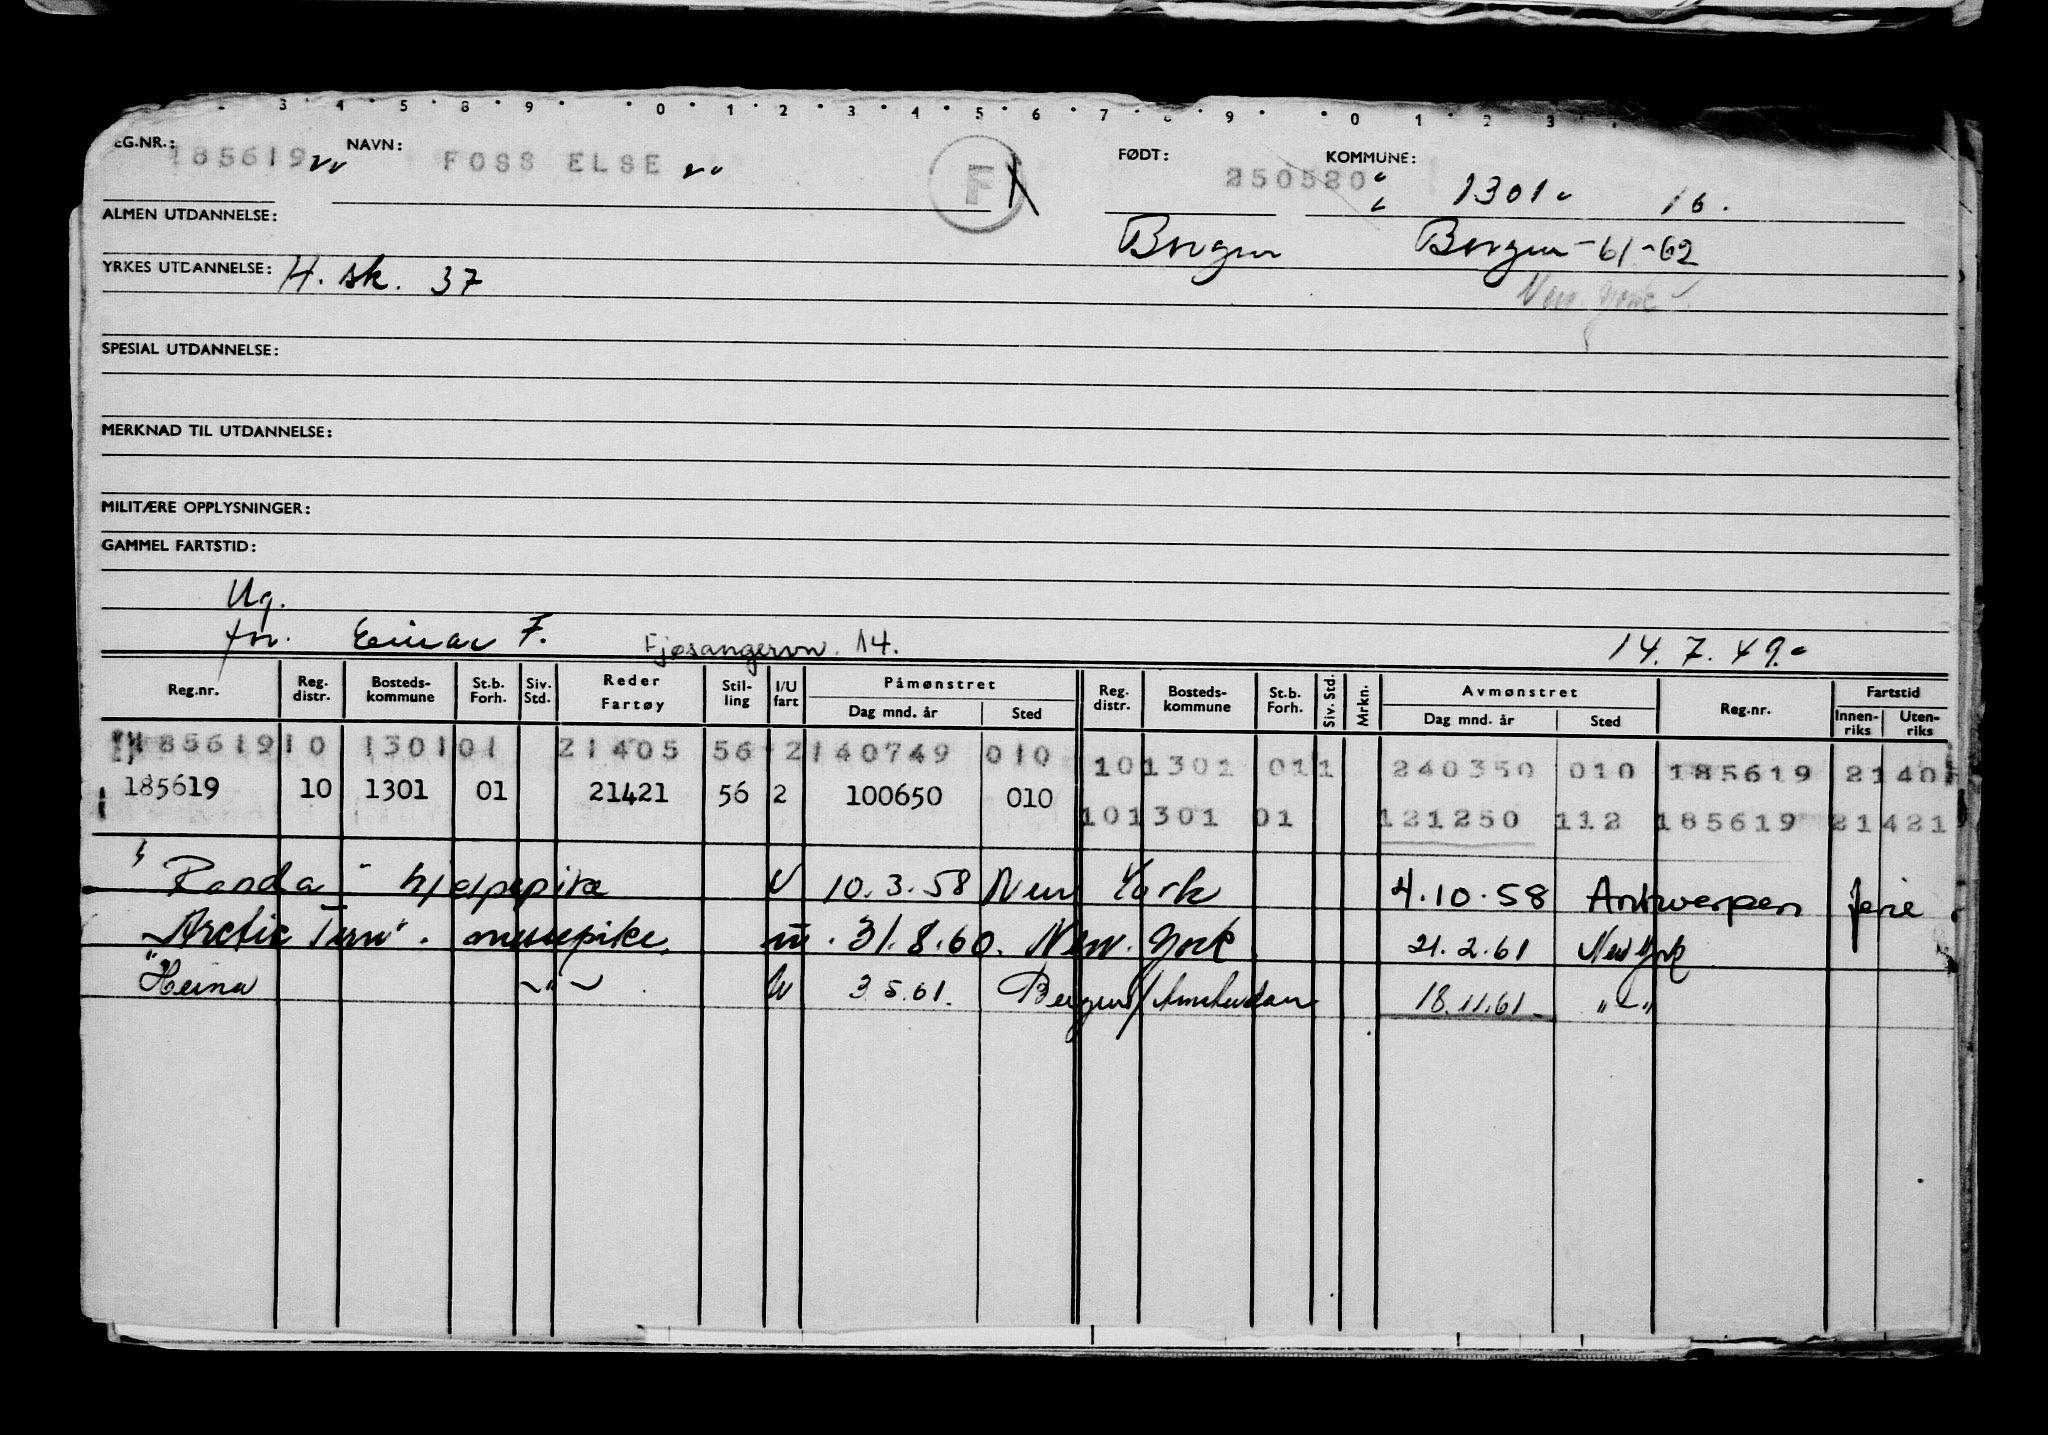 3 4 5 8 9 0 1 2 3 4 5 6 7 8 9 0 1 2 3
EG.NR.: 185619 NAVN: FOSS ELSE F FØDT: 250520 KOMMUNE: 1301 16.
ALMEN UTDANNELSE: Bergen Bergen -61-62
YRKES UTDANNELSE: H. sk. 37 New York
SPESIAL UTDANNELSE:
MERKNAD TIL UTDANNELSE:
MILITÆRE OPPLYSNINGER:
GAMMEL FARTSTID:
Ug.
fm. Einar F. Fjøsangervn. 14. 14.7.49.
Reg.nr. Reg. distr. Bosteds-kommune St.b. Forh. Siv. Std. Reder Fartøy Stil-ling I/U fart Påmønstret Dag mnd. år Sted Reg. distr. Bosteds-kommune St.b. Forh. Siv. Std. Mrkn. Avmønstret Dag mnd. år Sted Reg.nr. Fartstid Innen-riks Uten-riks
185619 10 1301 01 21405 56 2 140749 010 10 1301 01 1 240350 010 185619 21405
185619 10 1301 01 21421 56 2 100650 010
10 1301 01 121250 112 185619 21421
"Randa" hjelpepike U 10.3.58 New York 4.10.58 Antwerpen ferie
"Arctic Tern". messepike. U. 31.8.60. New York 21.2.61 New York
"Heina -"- U 3.5.61. Bergen/Amsterdam 18.11.61 "-"